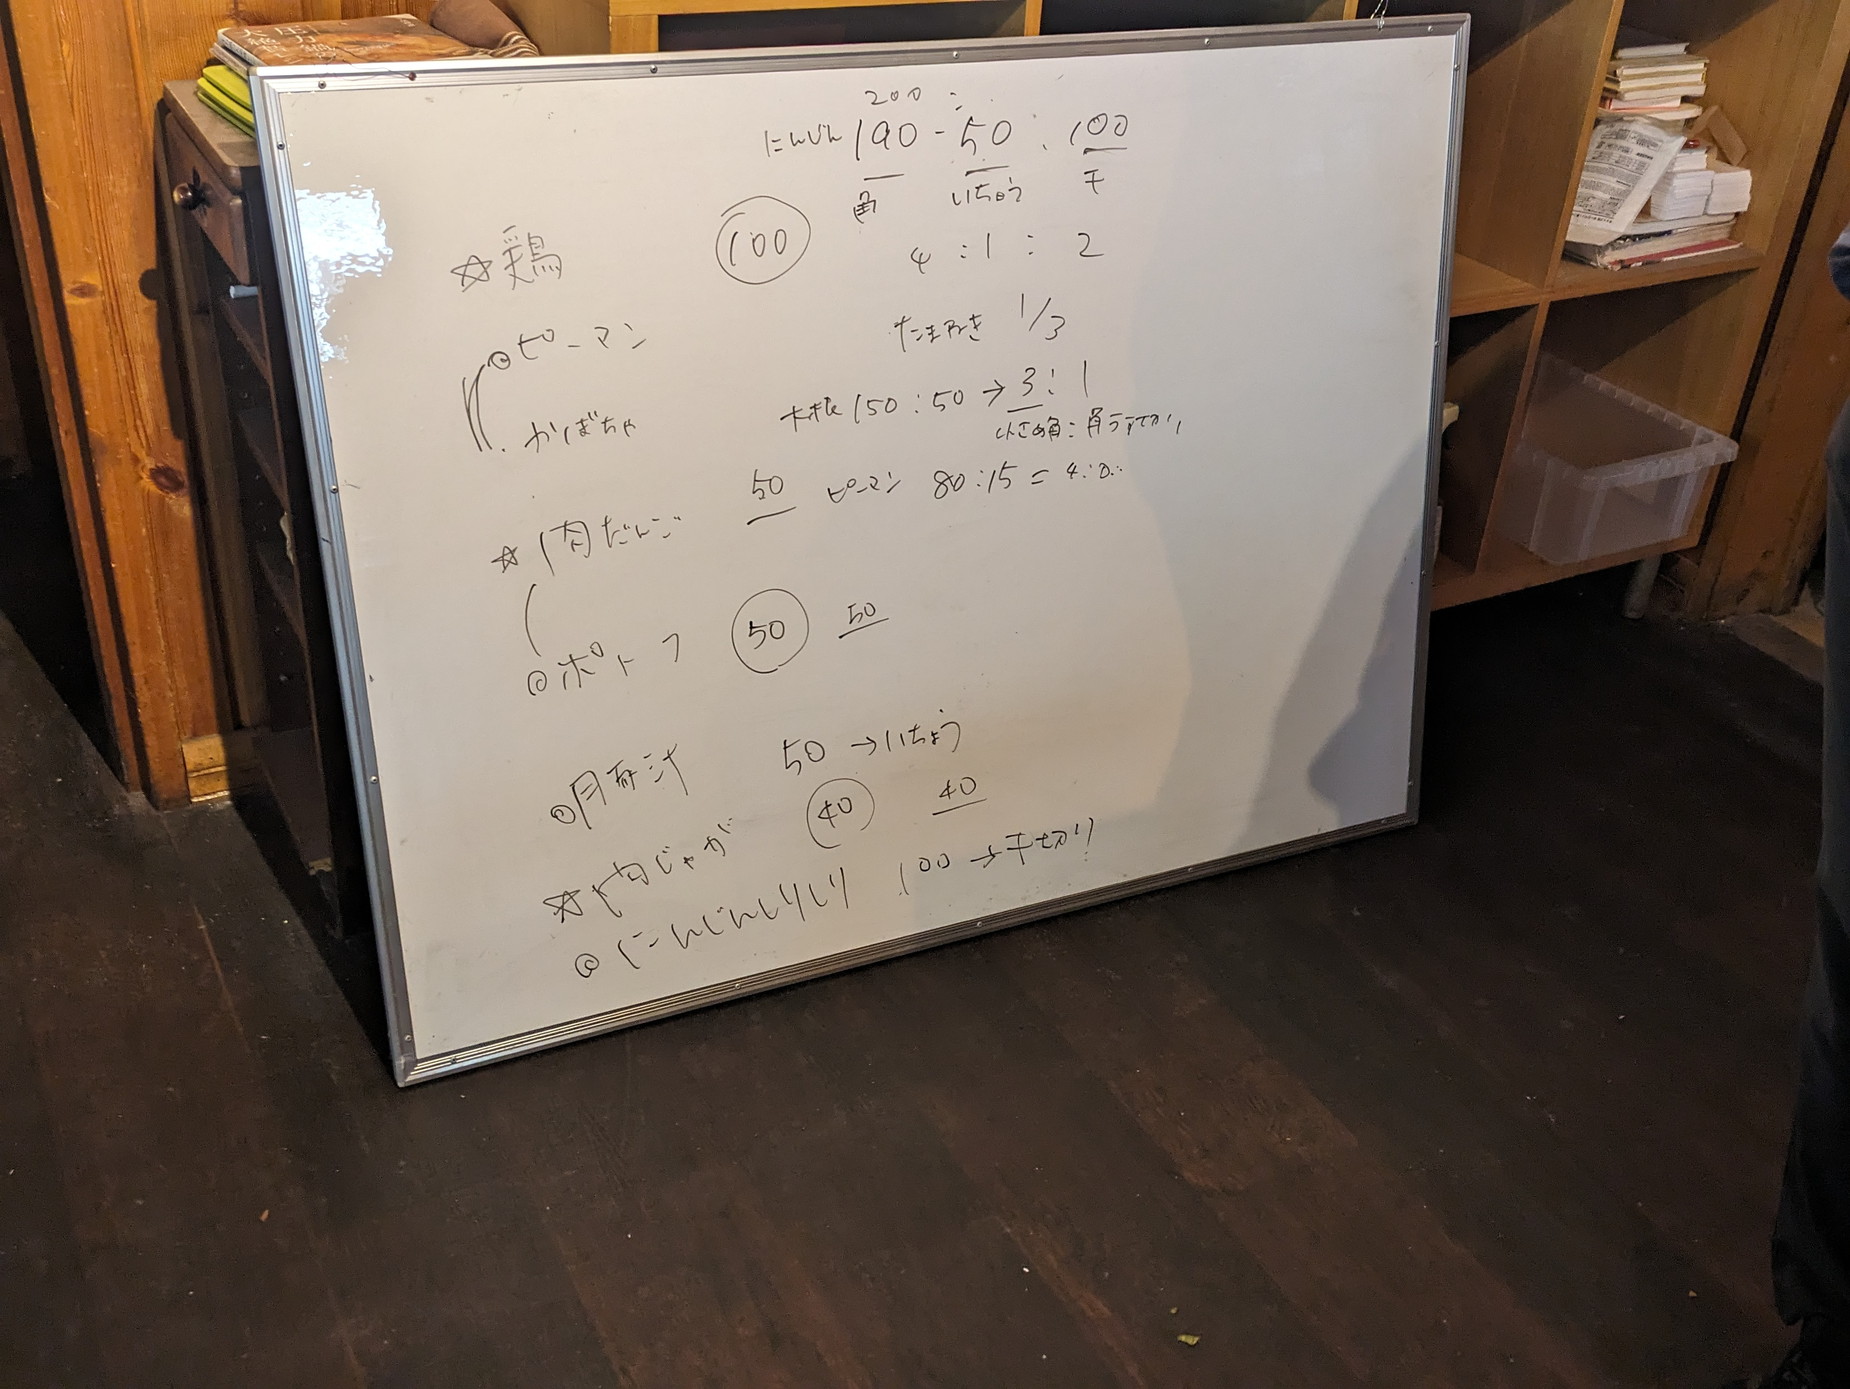 200 :
にんじん 190 - 50 : 100
角 いちょう 千
☆鶏 100
4 : 1 : 2
◎ピーマン
たまねき 1/3
・かぼちゃ
大根 150 : 50 → 3 : 1
小さめ角 :
☆肉だんご 50
ピーマン 80 : 15 =
◎ポトフ 50 50
◎豚汁 50 →いちょう
☆肉じゃが 40 40
◎にんじんしりしり 100 →千切り